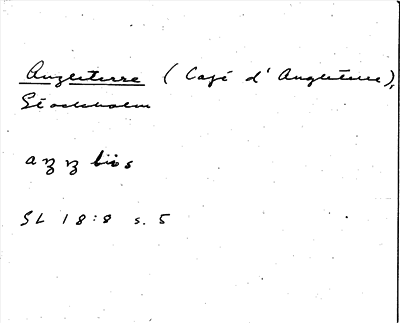 Angleterre (Café d'Angleterre),
Stockholm
SL 18:8 s. 5